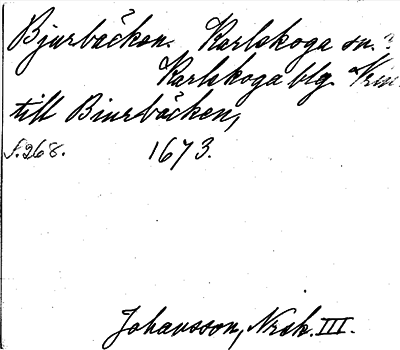 Bjurbäcken. Karlskoga sn.
Karlskoga blg.
till Biurbäcken,
S. 268. 1673.
Johansson, Nrsk. III.